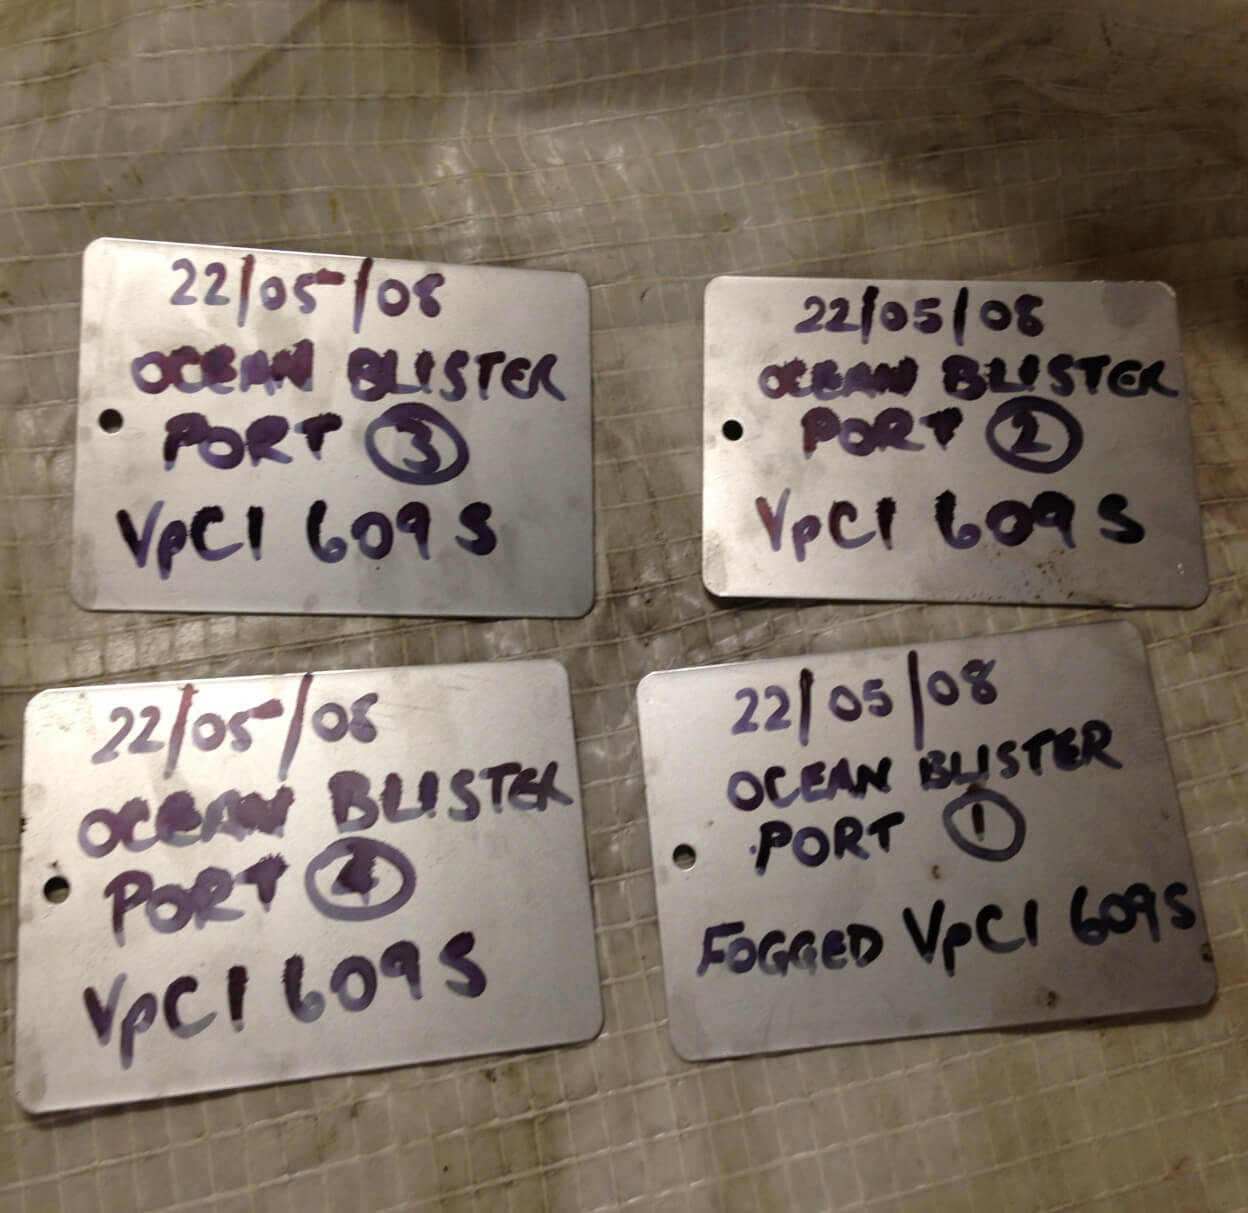 22/05/08
OCEAN BLISTER
PORT 3
VpCI 609 S
22/05/08
OCEAN BLISTER
PORT 2
VpCI 609 S
22/05/08
OCEAN BLISTER
PORT 4
VpCI 609 S
22/05/08
OCEAN BLISTER
PORT 1
FOGGED VpCI 609S